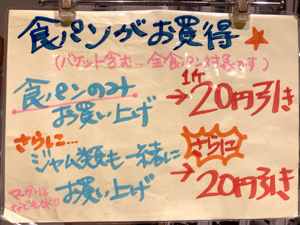 食パンがお買得
(バケット含む…全食パン対象です)
食パンのみ
お買い上げ
1ケ
→20円引き
さらに…
ジャム類も一緒に
お買い上げ
さらに
→20円引き
マーガリン
などもOK!!